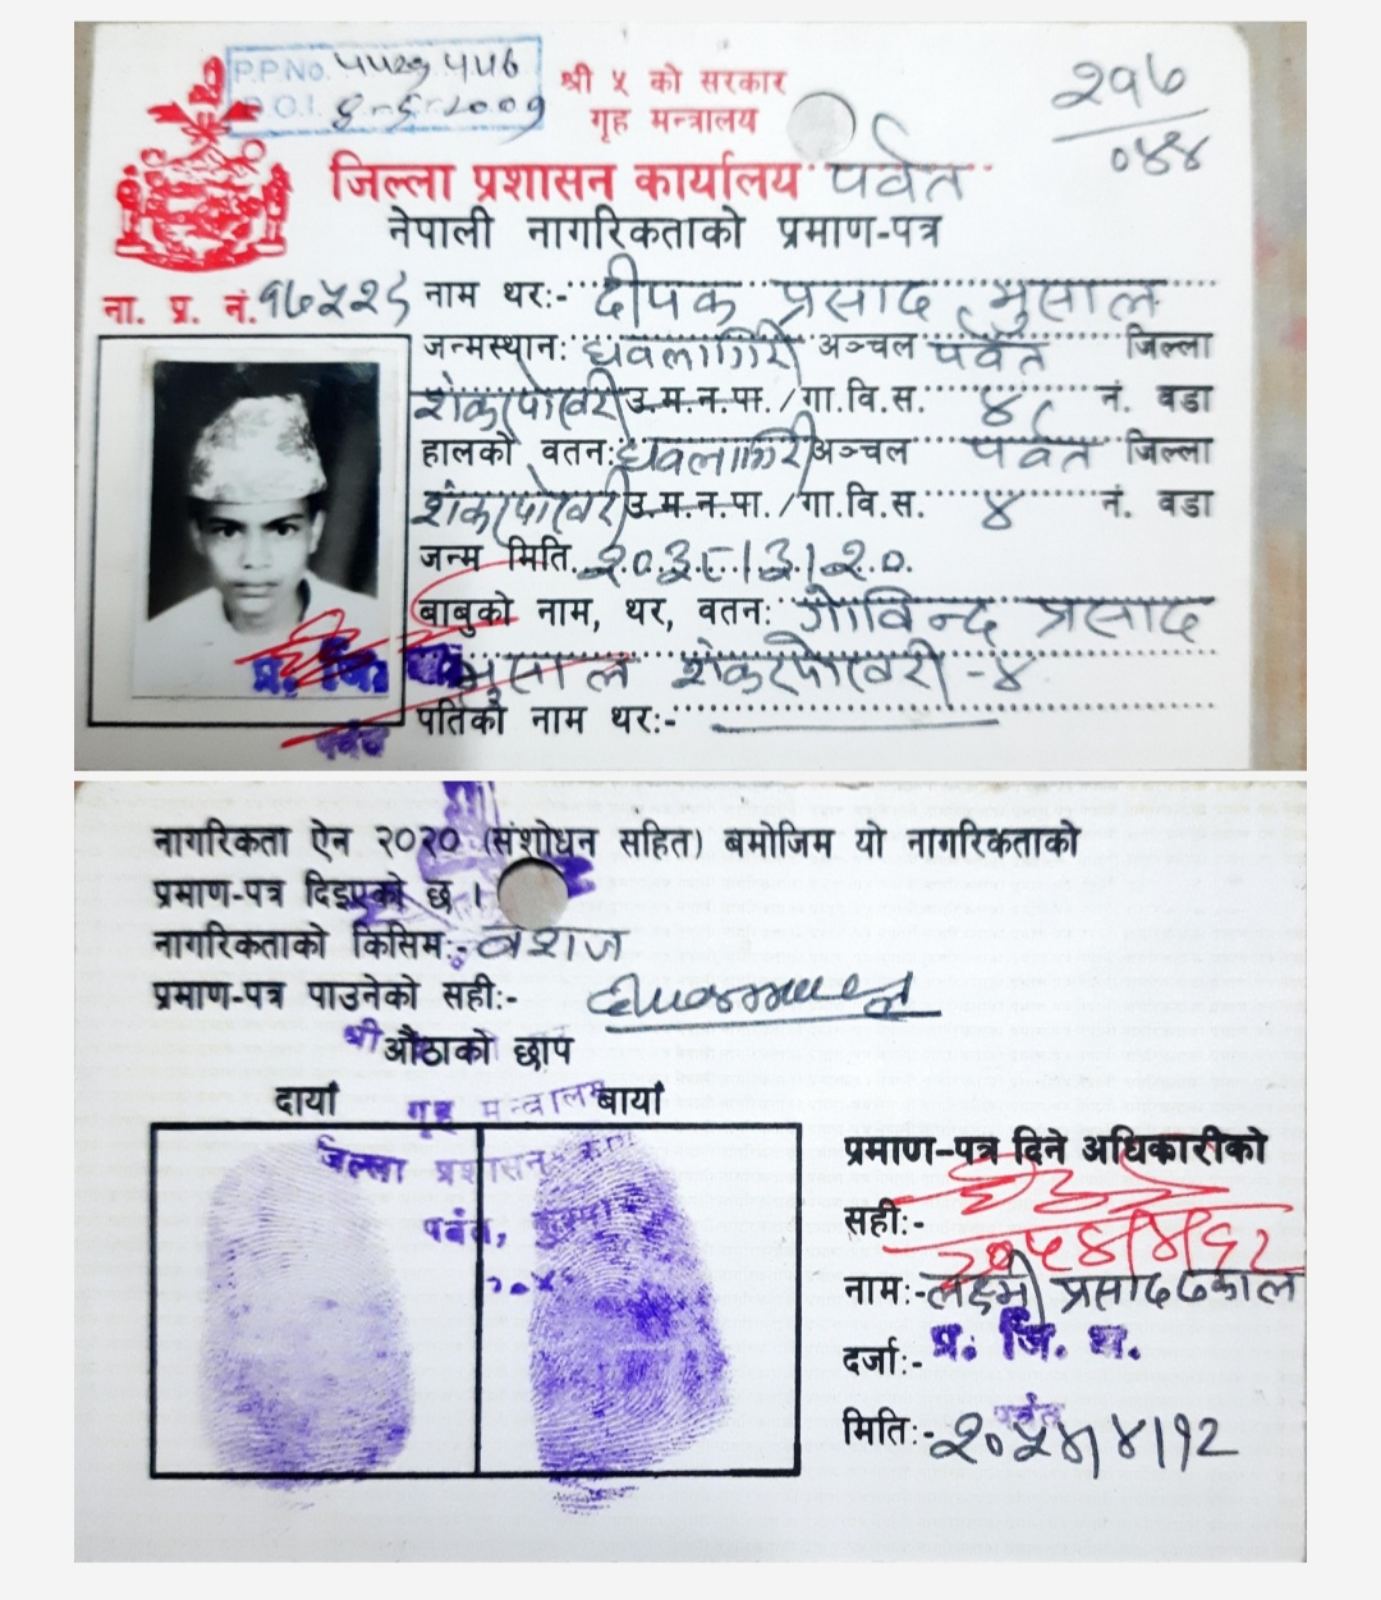 श्री ५ को सरकार
गृह मन्त्रालय
जिल्ला प्रशासन कार्यालय पर्वत
नेपाली नागरिकताको प्रमाण-पत्र
P.P.No.
२१७
०५४
ना. प्र. नं.
नाम थर:- दीपक प्रसाद भुसाल
जन्मस्थान: धवलागिरी अञ्चल पर्वत जिल्ला
शंकरपोखरी उ.म.न.पा./गा.वि.स. ४ नं. वडा
हालको वतन: धवलागिरी अञ्चल पर्वत जिल्ला
शंकरपोखरी उ.म.न.पा./गा.वि.स. ४ नं. वडा
जन्म मिति २०३८।३।२०
बाबुको नाम, थर, वतन: गोविन्द प्रसाद
भुसाल शंकरपोखरी -४
पतिको नाम थर:-
प्र. जि.
पर्वत
नागरिकता ऐन २०२० (संशोधन सहित) बमोजिम यो नागरिकताको
प्रमाण-पत्र दिइएको छ ।
नागरिकताको किसिम:- वंशज
प्रमाण-पत्र पाउनेको सही:-
श्री
औंठाको छाप
दायाँ बायाँ
गृह मन्त्रालय
जिल्ला प्रशासन
पर्वत,
प्रमाण-पत्र दिने अधिकारीको
सही:-
नाम:- लक्ष्मी प्रसाद ढकाल
दर्जा:- प्र. जि. अ.
पर्वत
मिति:- २०५४।४।१२